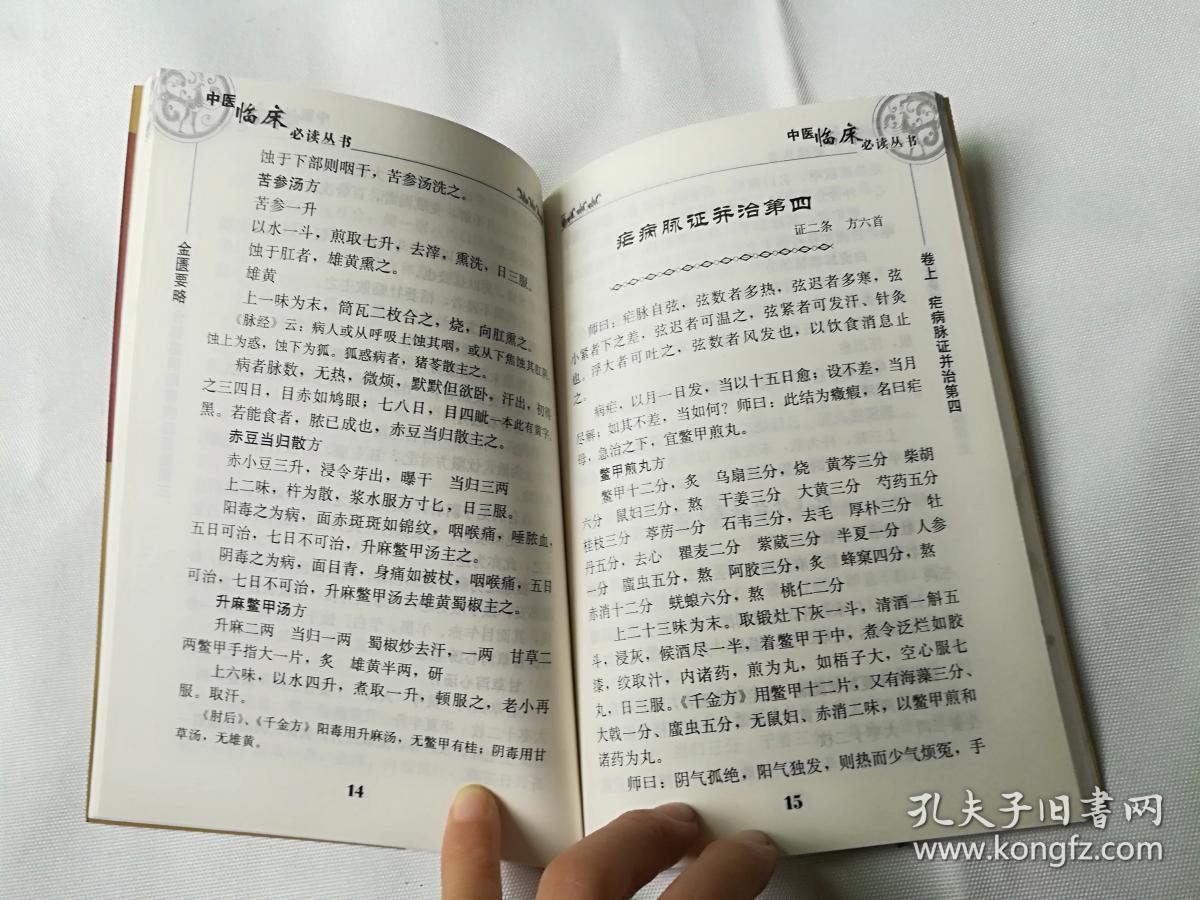 中医临床必读丛书
金匮要略
蚀于下部则咽干，苦参汤洗之。
苦参汤方
苦参一升
以水一斗，煎取七升，去滓，熏洗，日三服。
蚀于肛者，雄黄熏之。
雄黄
上一味为末，筒瓦二枚合之，烧，向肛熏之。
《脉经》云：病人或从呼吸上蚀其咽，或从下焦蚀其肛阴，
蚀上为惑，蚀下为狐。狐惑病者，猪苓散主之。
病者脉数，无热，微烦，默默但欲卧，汗出，初得
之三四日，目赤如鸠眼；七八日，目四眦一本此有黄字
黑。若能食者，脓已成也，赤豆当归散主之。
赤豆当归散方
赤小豆三升，浸令芽出，曝干 当归三两
上二味，杵为散，浆水服方寸匕，日三服。
阳毒之为病，面赤斑斑如锦纹，咽喉痛，唾脓血，
五日可治，七日不可治，升麻鳖甲汤主之。
阴毒之为病，面目青，身痛如被杖，咽喉痛，五日
可治，七日不可治，升麻鳖甲汤去雄黄蜀椒主之。
升麻鳖甲汤方
升麻二两 当归一两 蜀椒炒去汗，一两 甘草二
两鳖甲手指大一片，炙 雄黄半两，研
上六味，以水四升，煮取一升，顿服之，老小再
服。取汗。
《肘后》、《千金方》阳毒用升麻汤，无鳖甲有桂；阴毒用甘
草汤，无雄黄。
14
中医临床必读丛书
卷上 疟病脉证并治第四
疟病脉证并治第四
证二条 方六首
师曰：疟脉自弦，弦数者多热，弦迟者多寒，弦
小紧者下之差，弦迟者可温之，弦紧者可发汗、针灸
也。浮大者可吐之，弦数者风发也，以饮食消息止
之。
病疟，以月一日发，当以十五日愈；设不差，当月
尽解；如其不差，当如何？师曰：此结为癥瘕，名曰疟
母，急治之下，宜鳖甲煎丸。
鳖甲煎丸方
鳖甲十二分，炙 乌扇三分，烧 黄芩三分 柴胡
六分 鼠妇三分，熬 干姜三分 大黄三分 芍药五分
桂枝三分 葶苈一分 石韦三分，去毛 厚朴三分 牡
丹五分，去心 瞿麦二分 紫葳三分 半夏一分 人参
一分 䗪虫五分，熬 阿胶三分，炙 蜂窠四分，熬
赤消十二分 蜣螂六分，熬 桃仁二分
上二十三味为末。取锻灶下灰一斗，清酒一斛五
斗，浸灰，候酒尽一半，着鳖甲于中，煮令泛烂如胶
漆，绞取汁，内诸药，煎为丸，如梧子大，空心服七
丸，日三服。《千金方》用鳖甲十二片，又有海藻三分、
大戟一分、䗪虫五分，无鼠妇、赤消二味，以鳖甲煎和
诸药为丸。
师曰：阴气孤绝，阳气独发，则热而少气烦冤，手
15
孔夫子旧书网
www.kongfz.com